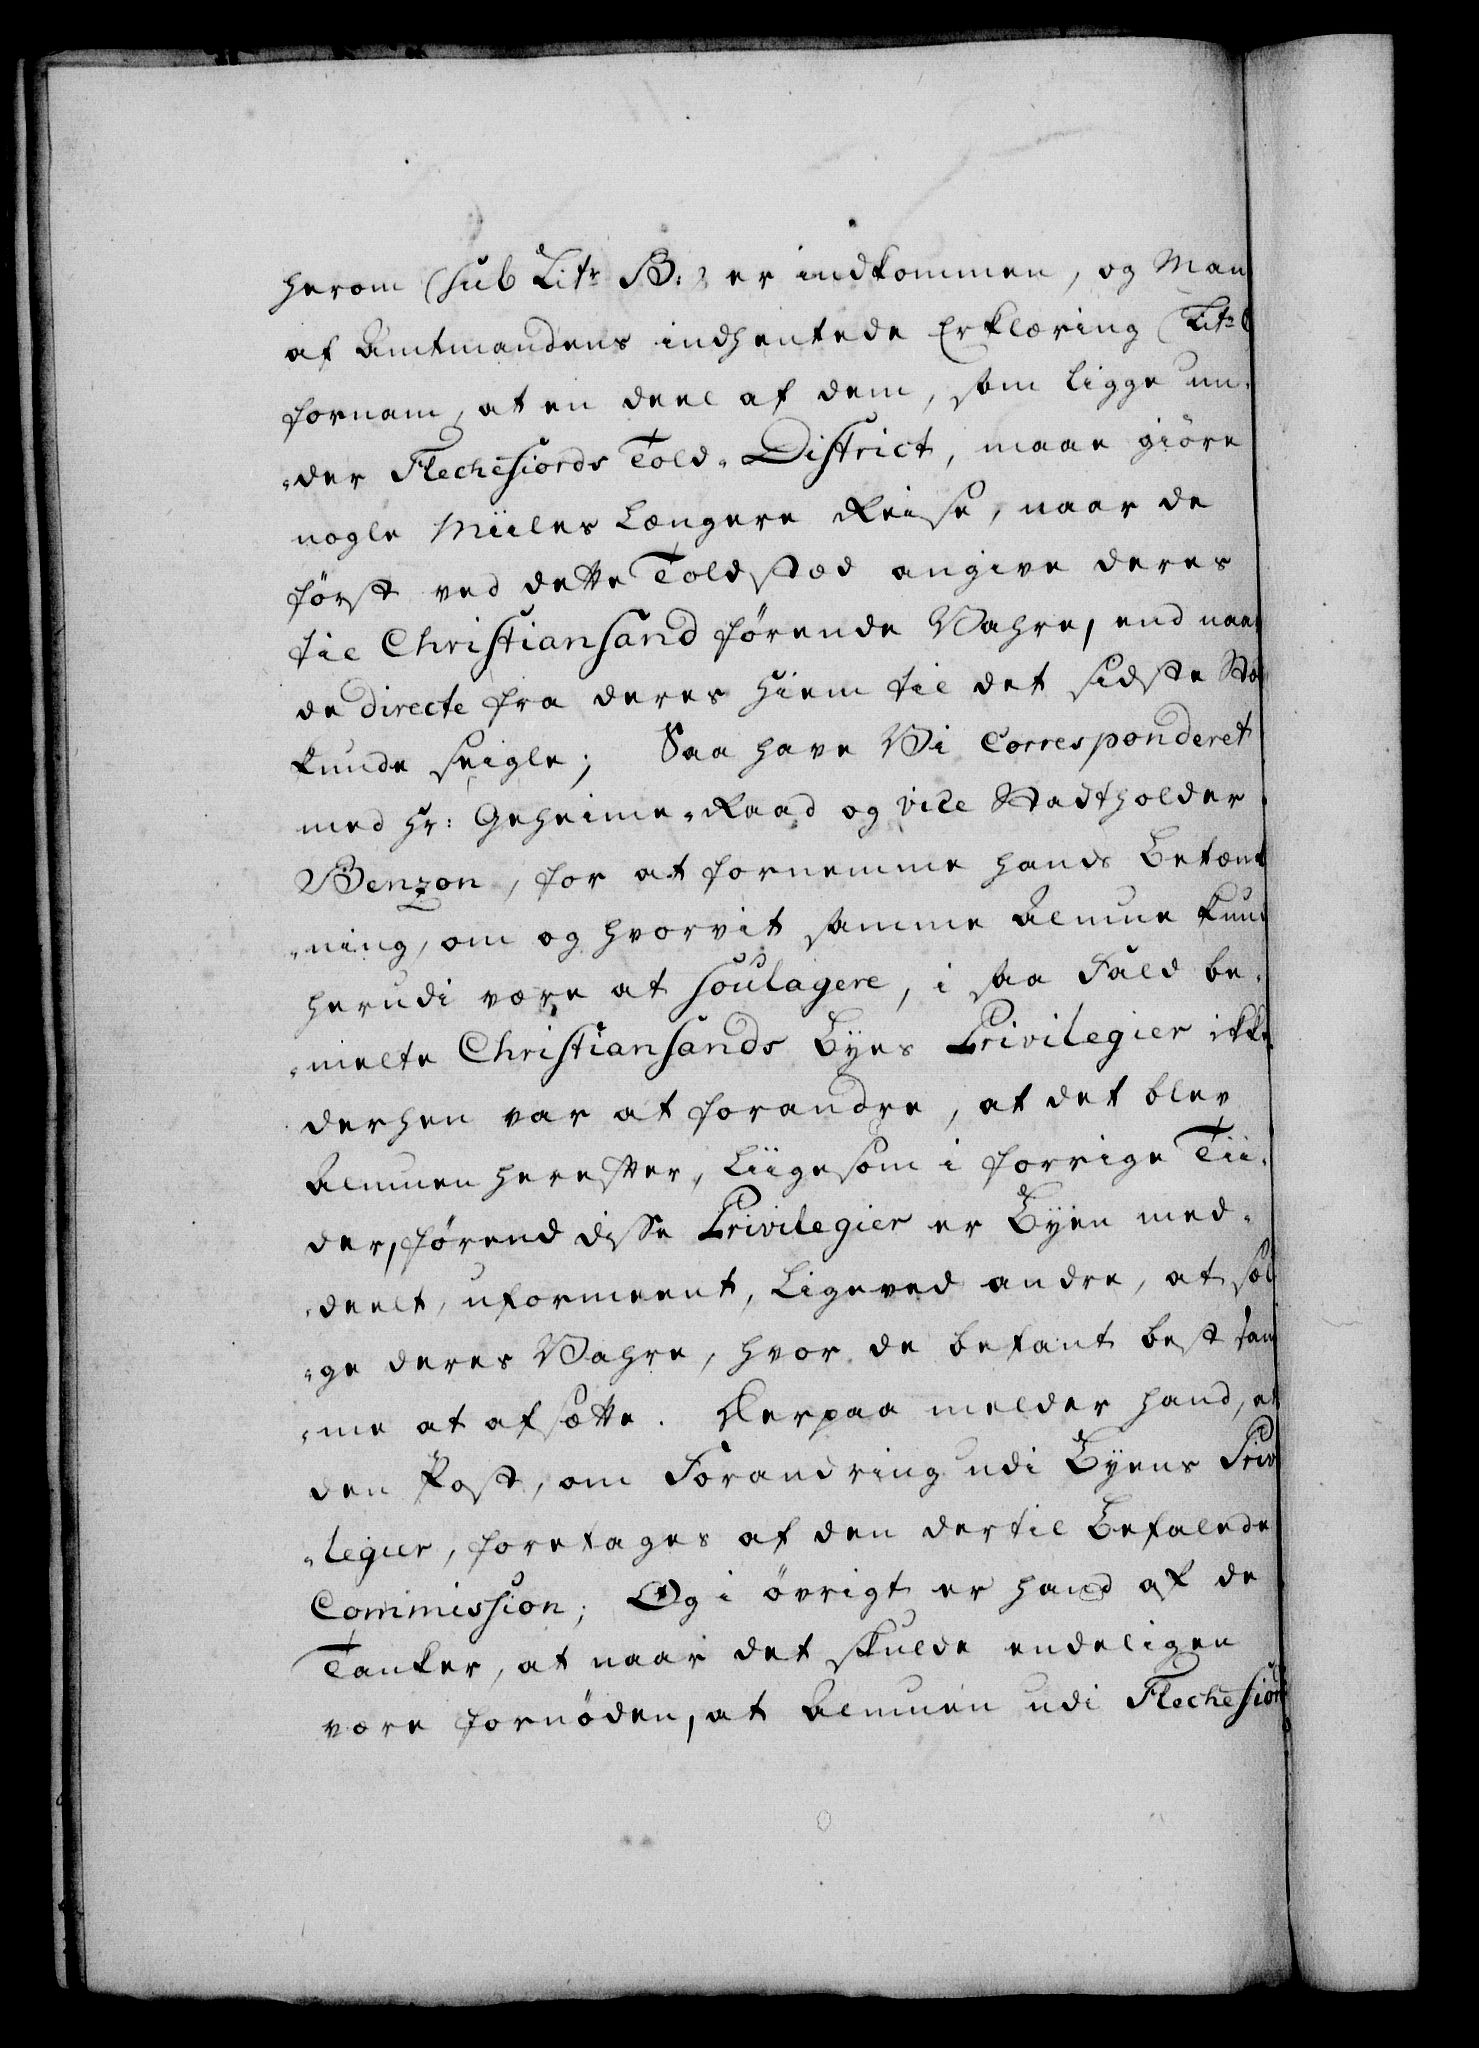 herom (sub Litr B:) er indkommen, og Man
af Amtmandens indhentede Erklæring (Litr C
fornam, at en deel af dem, som ligge un-
-der Flechefiords Told-District, maae giöre
nogle Miiles Længere Reise, naar de
först ved dette Toldstæd angive deres
til Christiansand förende Vahre, end naar
de directe fra deres Hiem til det sidste Stæ
kunde seigle; Saa have Vi Corresponderet
med Hr: Geheime-Raad og vice Stadtholder
Benzon, for at fornemme hands Betænk
-ning, om og hvorvit samme Almue kunde
herudi være at soulagere, i saa Fald be-
-melte Christiansands Byes Privilegier ikke
derhen var at forandre, at det blev
Almuen herefter, Liigesom i forrige Tii-
der, förend disse Privilegier er Byen med-
-deelt, uformeent, Ligeved andre, at sæl
-ge deres Vahre, hvor de befant best sam
-me at afsætte. Derpaa melder hand, at
den Post, om Forandring udi Byens Privi
-legier, foretages af den dertil Befalede
Commission; Og i övrigt er hand af de
Tanker, at naar det skulde endeligen
være fornöden, at Almuen udi Flechefiord